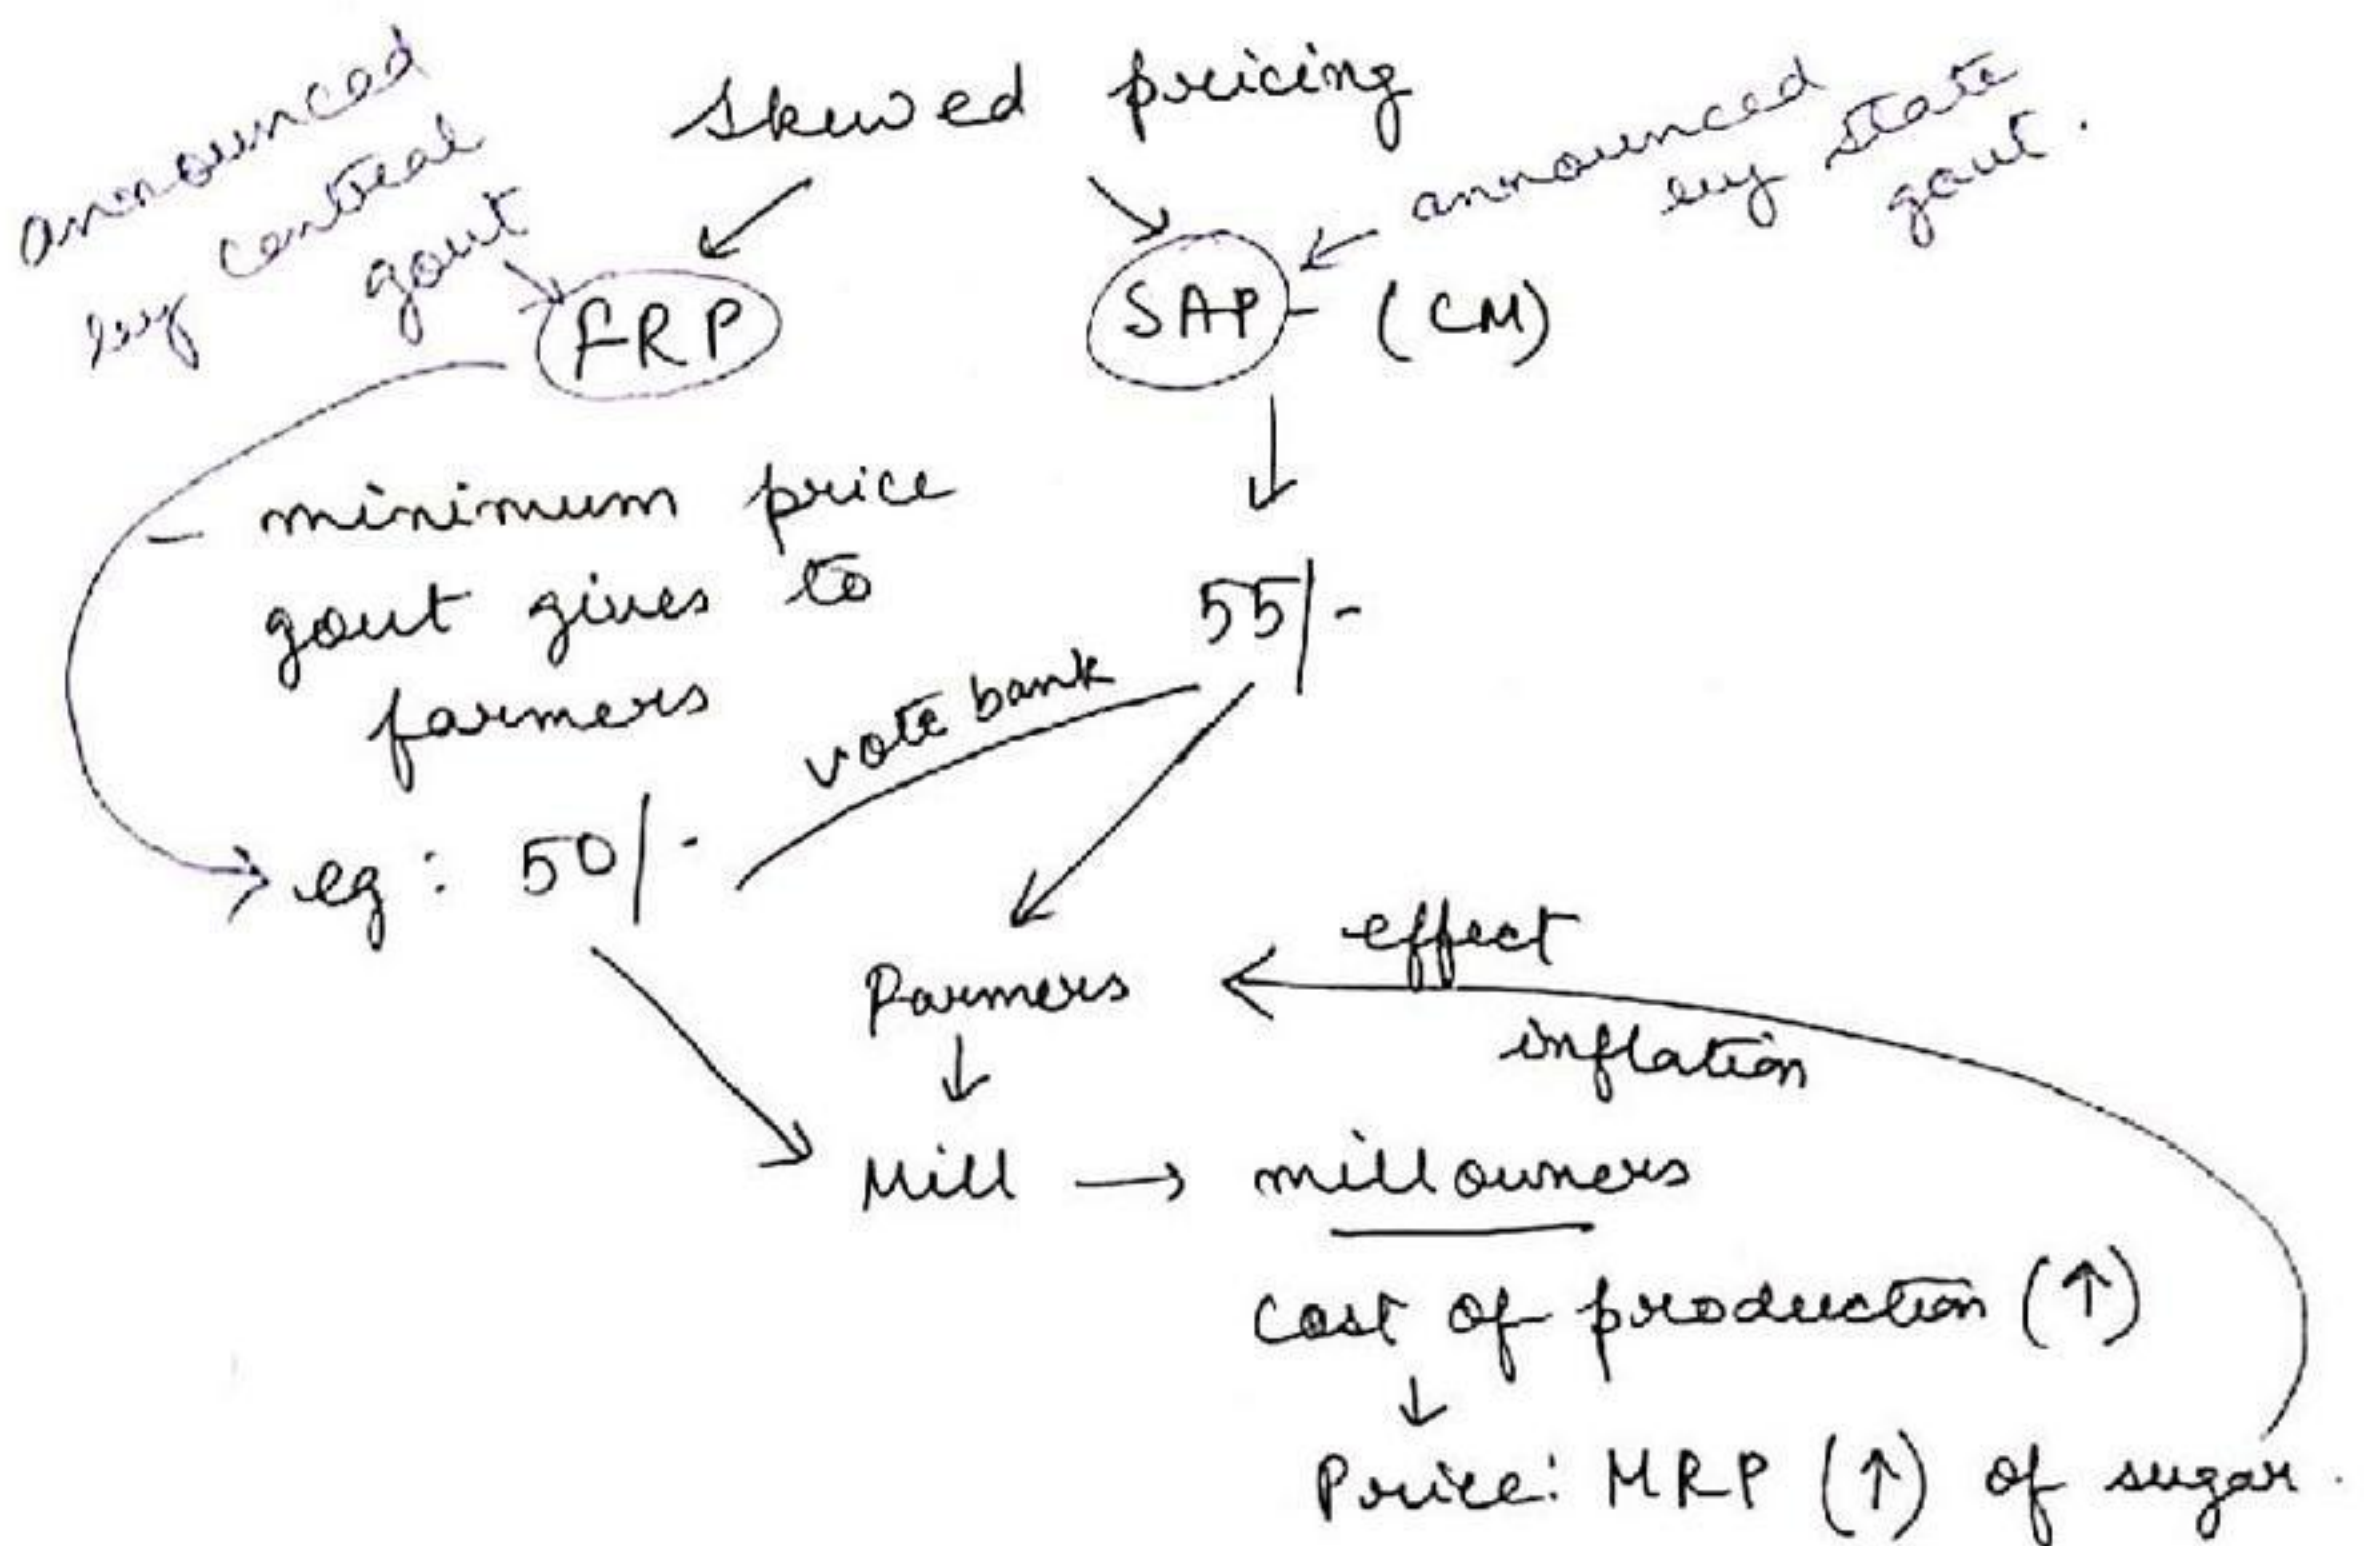 Skewed pricing
announced
by central
govt
announced
by state
govt.
FRP
SAP - (CM)
- minimum price
govt gives to
farmers
55/-
vote bank
eg : 50/-
Farmers
effect
inflation
Mill → mill owners
cost of production (↑)
↓
Price: MRP (↑) of sugar.